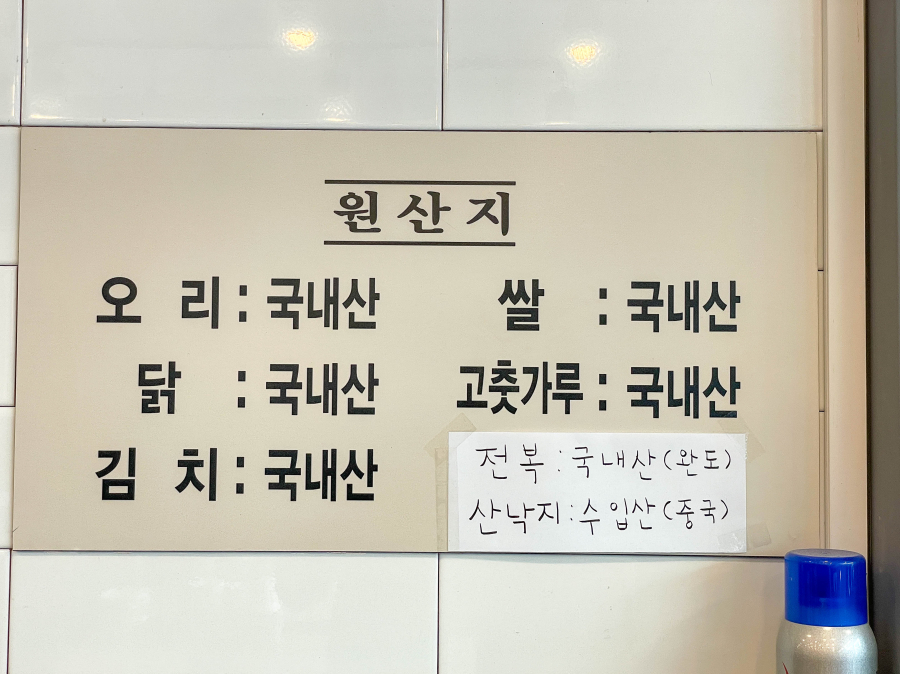 원산지
오리 : 국내산
쌀 : 국내산
닭 : 국내산
고춧가루 : 국내산
김치 : 국내산
전복 : 국내산(완도)
산낙지 : 수입산(중국)